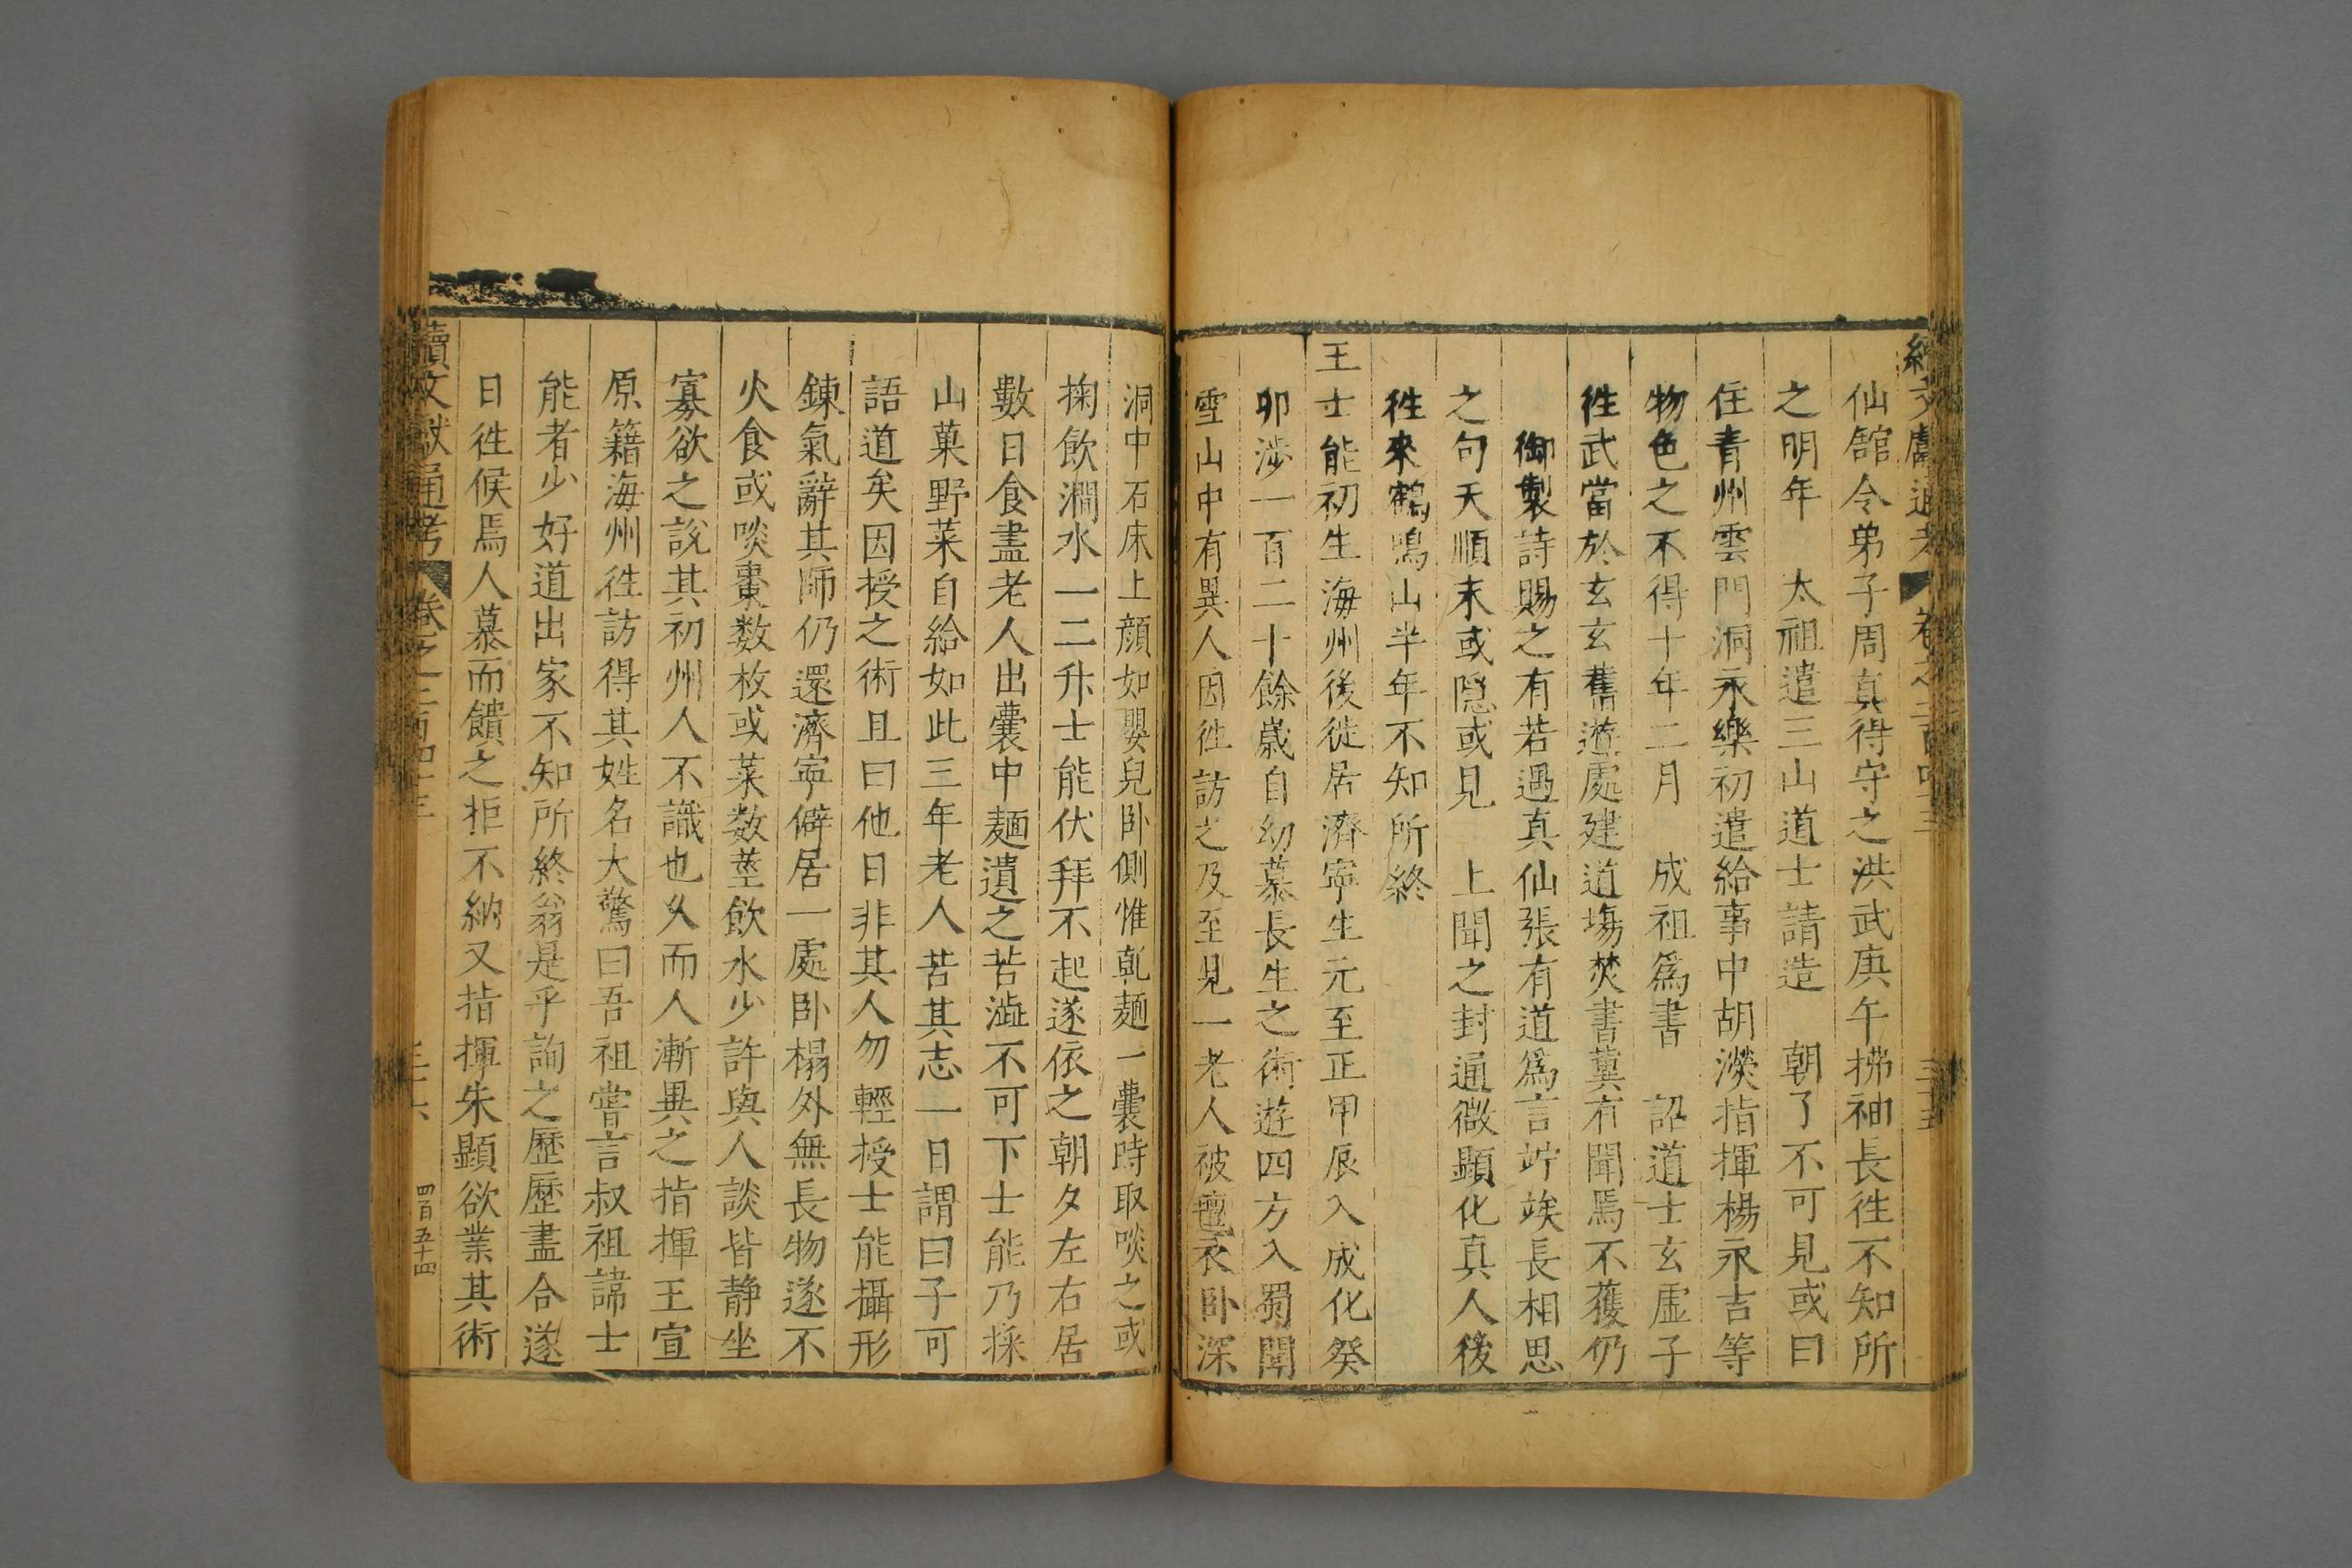 續文獻通考 卷之二百四十三 三十五
仙館令弟子周真得守之洪武庚午拂袖長徃不知所
之明年 太祖遣三山道士請造 朝了不可見或曰
住青州雲門洞永樂初遣給事中胡濙指揮楊永吉等
物色之不得十年二月 成祖爲書 詔道士玄虛子
徃武當於玄玄舊遊處建道塲焚書冀有聞焉不獲仍
御製詩賜之有若遇真仙張有道爲言竚竢長相思
之句天順末或隠或見 上聞之封通微顯化真人後
徃來鶴鳴山半年不知所終
王士能初生海州後徙居濟寧生元至正甲辰入成化癸
卯渉一百二十餘嵗自幼慕長生之術遊四方入蜀聞
雪山中有異人因徃訪之及至見一老人被氊衣卧深
洞中石床上顔如嬰兒卧側惟乾麺一囊時取啖之或
掬飲澗水一二升士能伏拜不起遂依之朝夕左右居
數日食盡老人出囊中麺遺之苦澁不可下士能乃採
山菓野菜自給如此三年老人苦其志一日謂曰子可
語道矣因授之術且曰他日非其人勿輕授士能攝形
鍊氣辭其師仍還濟寧僻居一處卧榻外無長物遂不
火食或啖棗数枚或菜数莖飲水少許與人談皆静坐
寡欲之說其初州人不識也久而人漸異之指揮王宣
原籍海州徃訪得其姓名大驚曰吾祖嘗言叔祖諱士
能者少好道出家不知所終翁是乎詢之歷歷盡合遂
日徃候焉人慕而饋之拒不納又指揮朱顯欲業其術
續文獻通考 卷之二百四十三 三十六 四百五十四